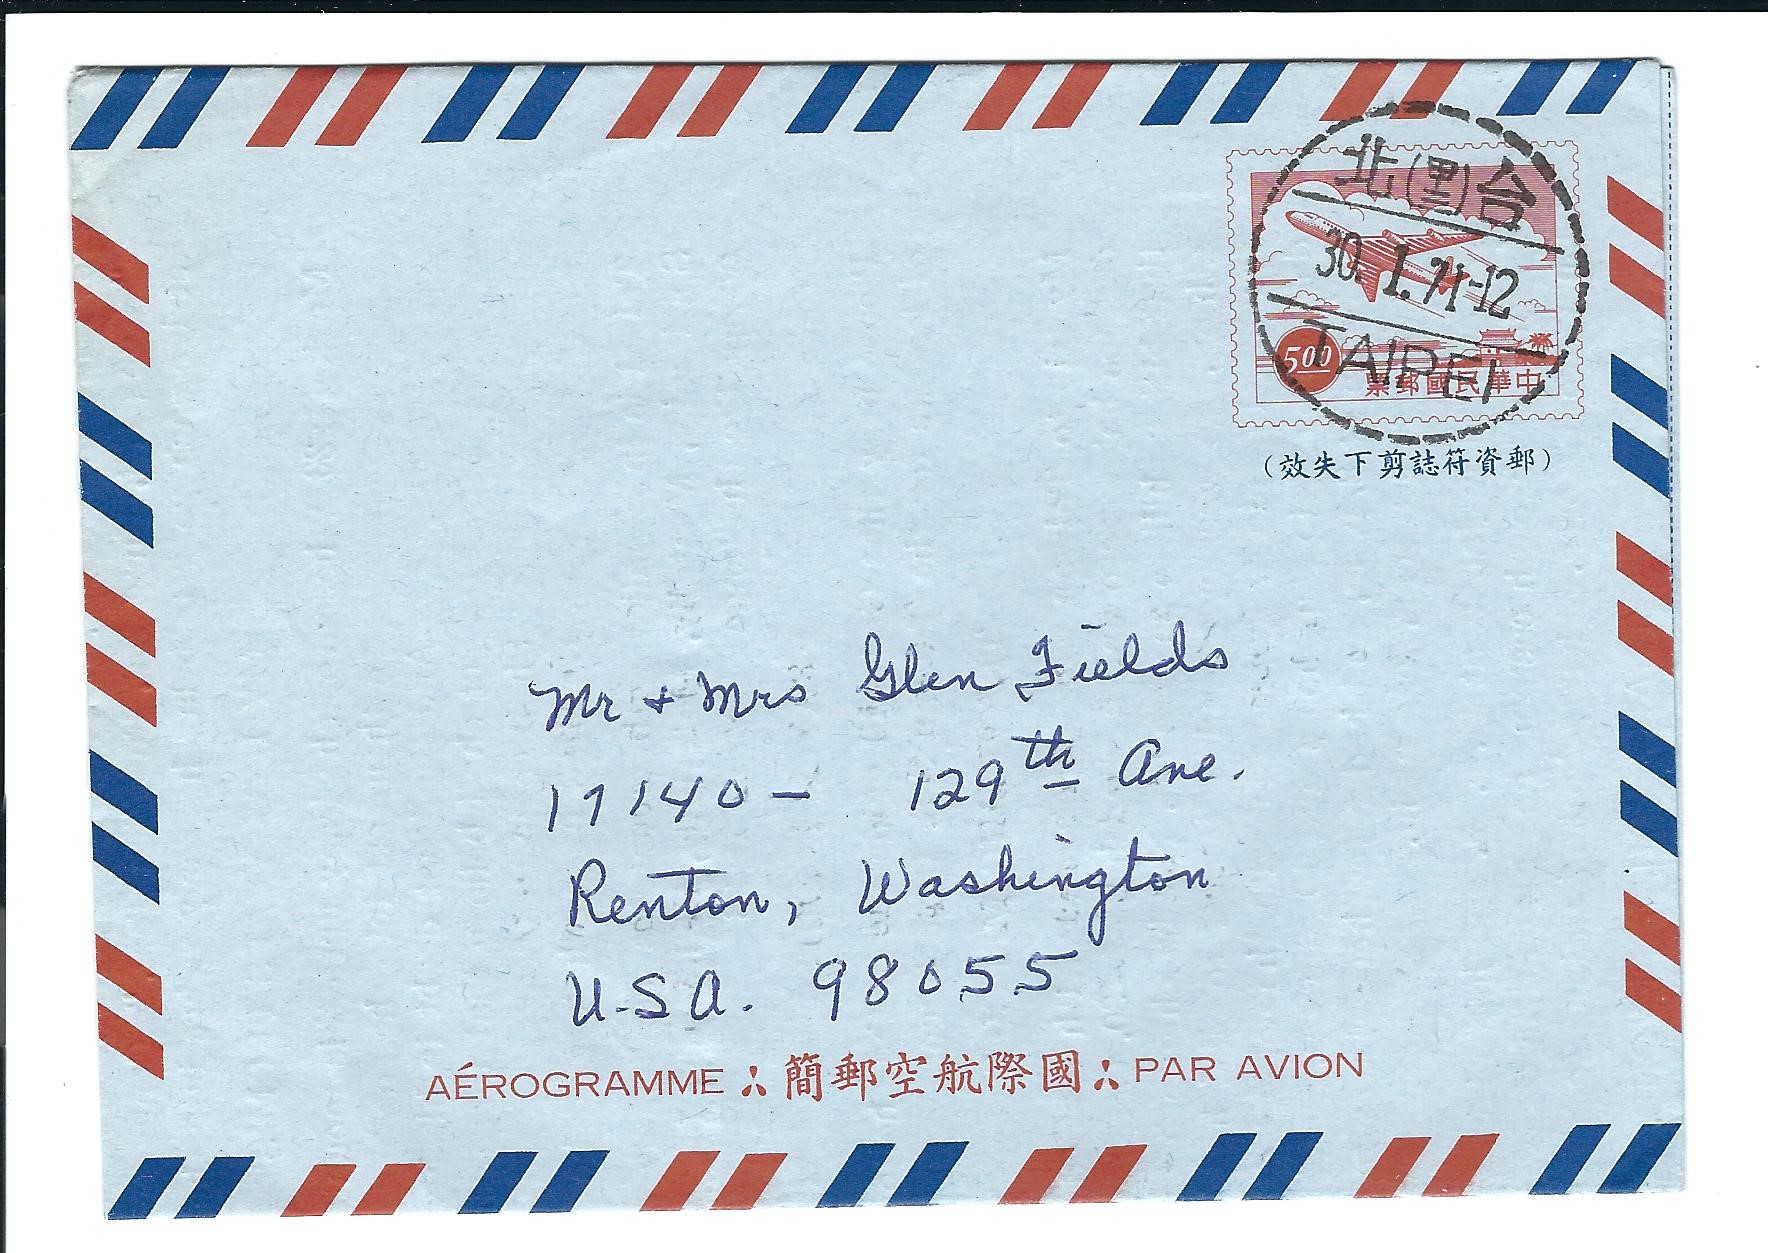 台 北
30. I. 71-12
TAIPEI
5.00
中華民國郵票
(郵資符誌剪下失效)
Mr + Mrs Glen Fields
17140 - 129th Ave.
Renton, Washington
U.S.A. 98055
AÉROGRAMME 國際航空郵簡 PAR AVION